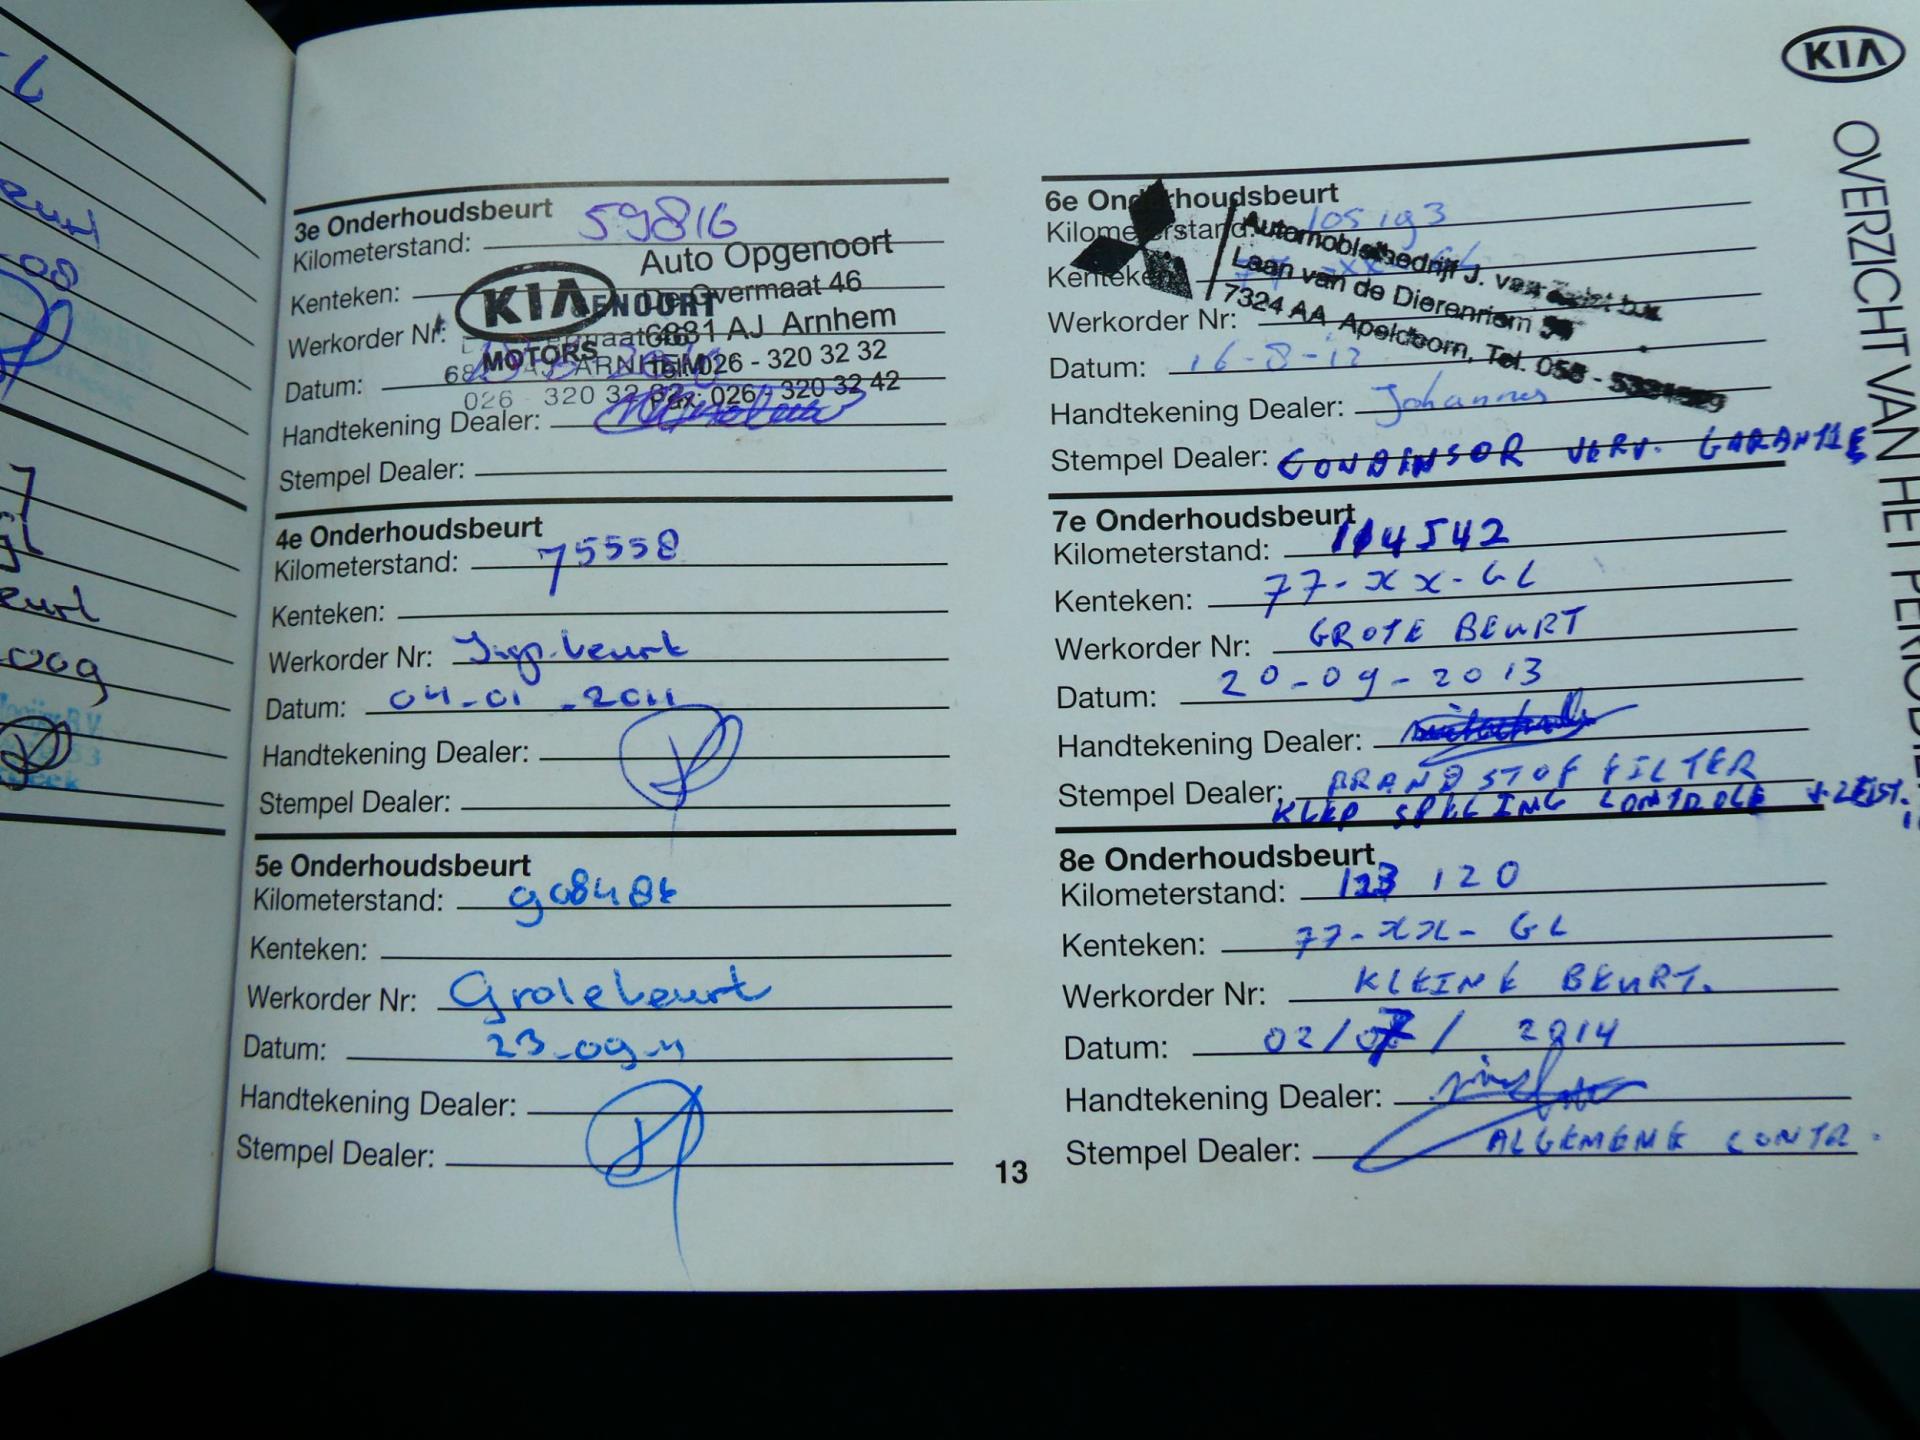 KIA
OVERZICHT VAN HET
3e Onderhoudsbeurt
Kilometerstand: 59816
Kenteken:
Werkorder Nr:
Datum:
Handtekening Dealer:
Stempel Dealer:
KIA
MOTORS
Auto Opgenoort
De Overmaat 46
6831 AJ Arnhem
Tel. 026 - 320 32 32
Fax: 026 - 320 32 42
4e Onderhoudsbeurt
Kilometerstand: 75558
Kenteken:
Werkorder Nr: Insp. beurt
Datum: 04-01-2011
Handtekening Dealer:
Stempel Dealer:
5e Onderhoudsbeurt
Kilometerstand:
Kenteken:
Werkorder Nr: Grote beurt
Datum: 23-09-11
Handtekening Dealer:
Stempel Dealer:
6e Onderhoudsbeurt
Kilometerstand: 105193
Kenteken:
Werkorder Nr:
Datum: 16-8-12
Handtekening Dealer: Johannes
Stempel Dealer: CONDINSOR VERV. GARANTIE
Automobielbedrijf J. van
Laan van de Dierenriem
7324 AA Apeldoorn, Tel. 055 -
7e Onderhoudsbeurt
Kilometerstand: 114542
Kenteken: 77-XX-GL
Werkorder Nr: GROTE BEURT
Datum: 20-09-2013
Handtekening Dealer:
Stempel Dealer: BRANDSTOF FILTER
KLEP SPELING CONTROLE
8e Onderhoudsbeurt
Kilometerstand: 123 120
Kenteken: 77-XX-GL
Werkorder Nr: KLEINE BEURT.
Datum: 02/07/2014
Handtekening Dealer:
Stempel Dealer: ALGEMENE CONTR.
13